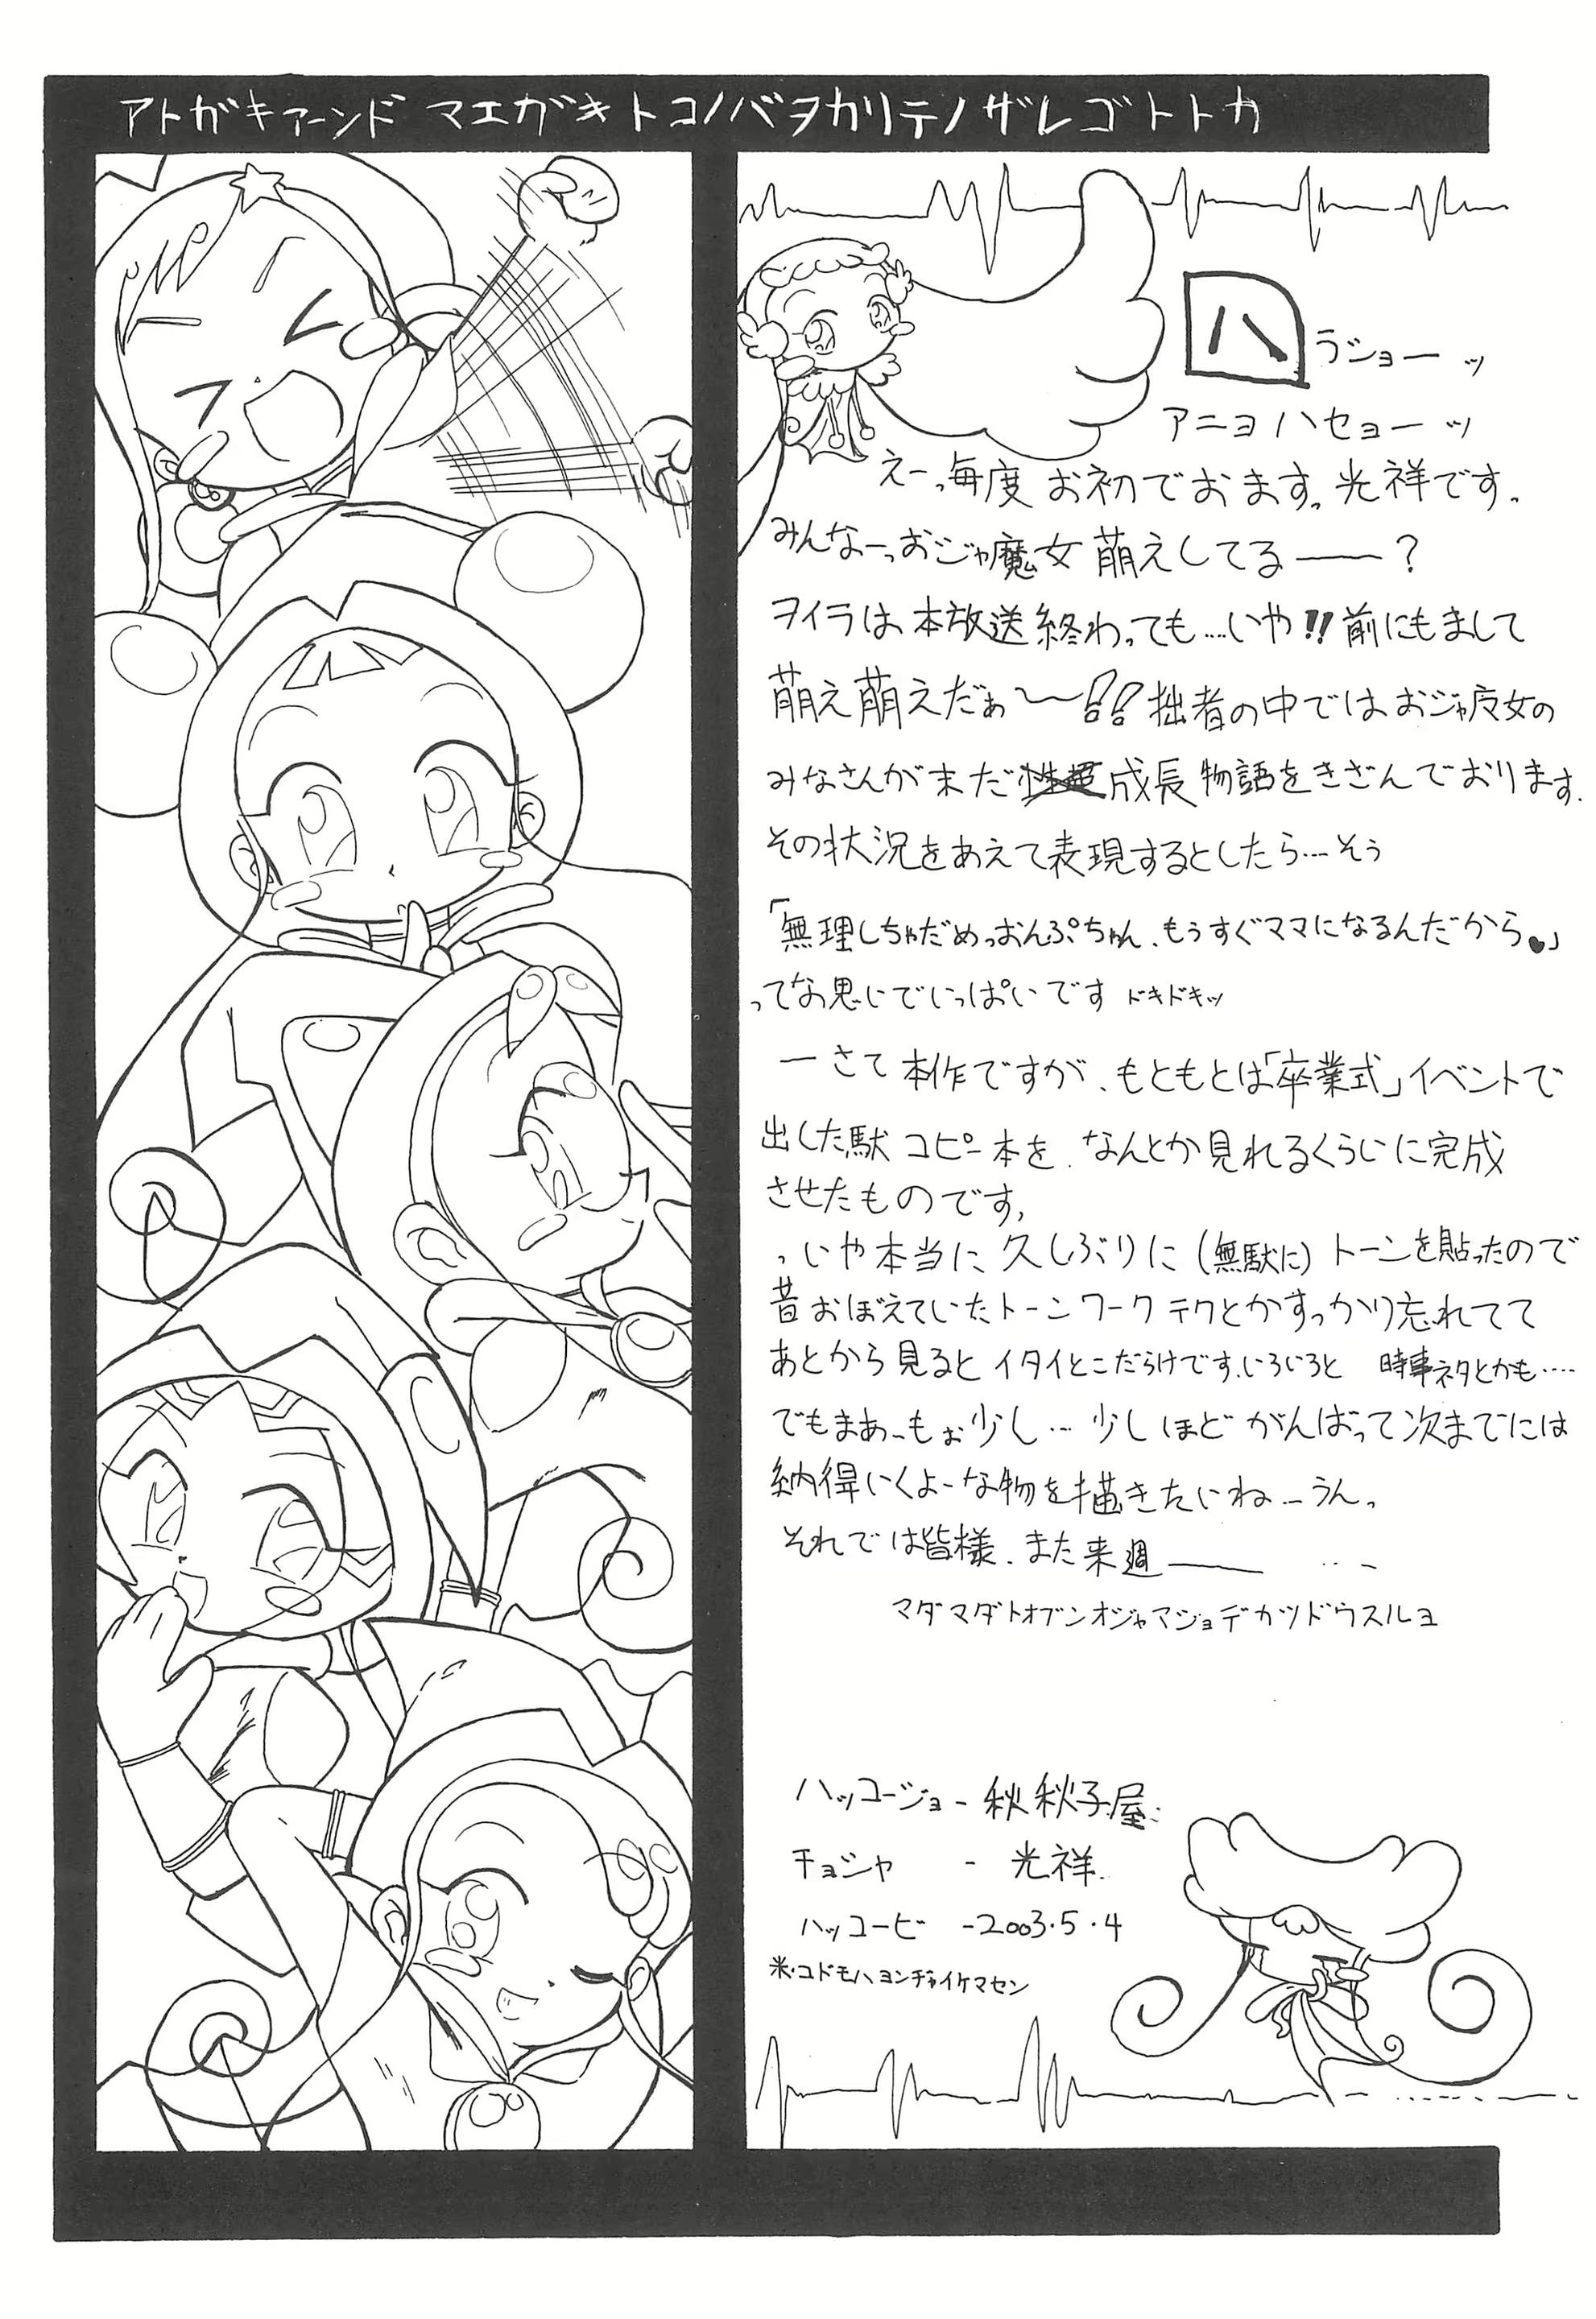 アトガキアーンド マエガキトコノバヲカリテノザレゴトトカ
ハラショーッ
アニョハセョーッ
えーっ毎度お初でおます。光祥です。
みんなーっおジャ魔女萌えしてる――?
ヲイラは本放送終わっても…いや!!前にもまして
萌え萌えだぁ〜〜!!拙者の中ではおジャ魔女の
みなさんが未だ成長物語をきざんでおります.
その状況をあえて表現するとしたら…そう
「無理しちゃだめっおんぷちゃん、もうすぐママになるんだから♥」
ってな思いでいっぱいです ドキドキッ
―さて本作ですが、もともとは「卒業式」イベントで
出した駄コピー本を、なんとか見れるくらいに完成
させたものです,
、いや本当に久しぶりに(無駄に)トーンを貼ったので
昔おぼえていたトーンワークテクとかすっかり忘れてて
あとから見るとイタイとこだらけです.いろいろと 時事ネタとかも……
でもまあ~もぉ少し…少しほどがんばって次までには
納得いくよーな物を描きたいね~うん。
それでは皆様、また来週―― …-
マダマダトオブンオジャマジョデカツドウスルヨ
ハッコージョ-秋秋子屋
チョシャ - 光祥.
ハッコービ -2003・5・4
米・コドモハヨンヂャイケマセン